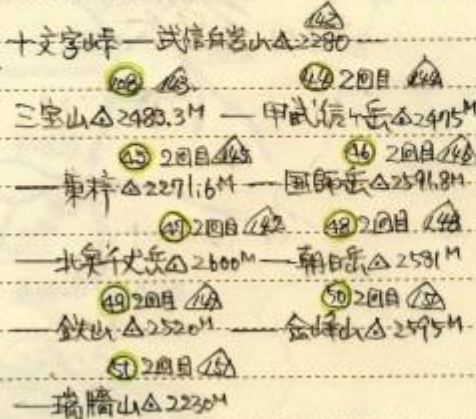 142
十文字峠 — 武信白岩山△2280 —
108 143 44 2回目 144
三宝山△2483.3M — 甲武信ヶ岳△2475M
45 2回目 145 46 2回目 146
— 東梓△2271.6M — 国師岳△2591.8M
47 2回目 147 48 2回目 148
— 北奥千丈岳△2600M — 朝日岳△2581M
49 2回目 149 50 2回目 150
— 鉄山△2520M — 金峰山△2595M
51 2回目 151
— 瑞牆山△2230M